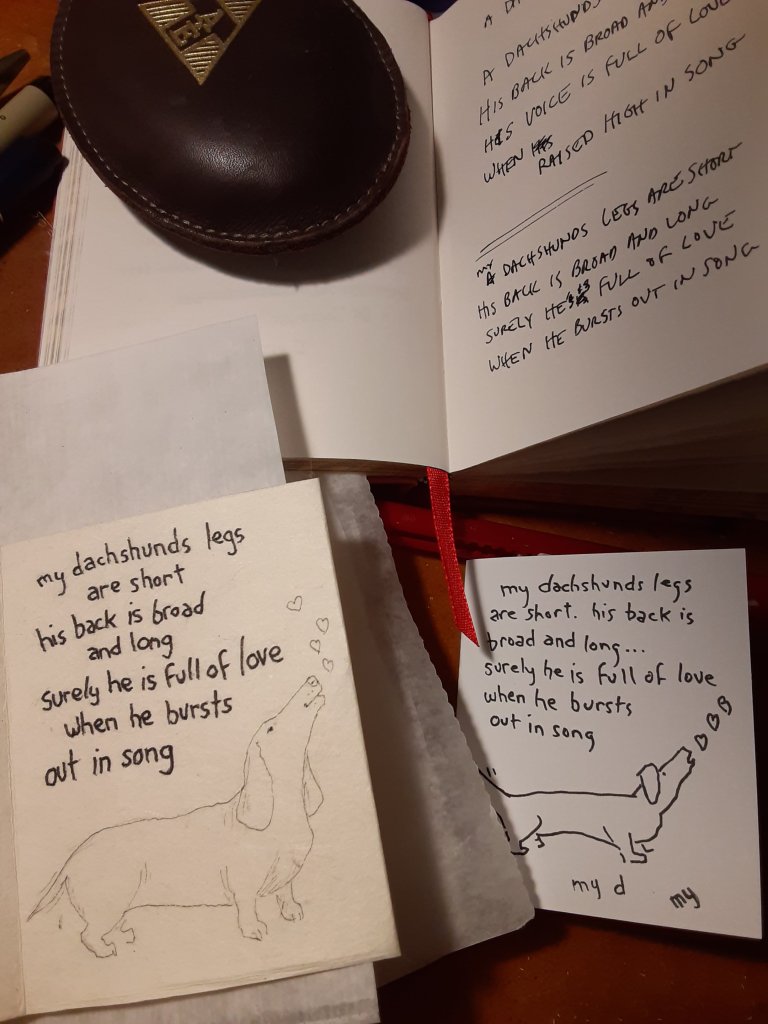 A
A DACHSHUNDS
HIS BACK IS BROAD AN
HIS VOICE IS FULL OF LOVE
WHEN RAISED HIGH IN SONG
my
A DACHSHUNDS LEGS ARE SHORT
HIS BACK IS BROAD AND LONG
SURELY HE IS FULL OF LOVE
WHEN HE BURSTS OUT IN SONG
my dachshunds legs
are short
his back is broad
and long
surely he is full of love
when he bursts
out in song
my dachshunds legs
are short. his back is
broad and long...
surely he is full of love
when he bursts
out in song
my d
my